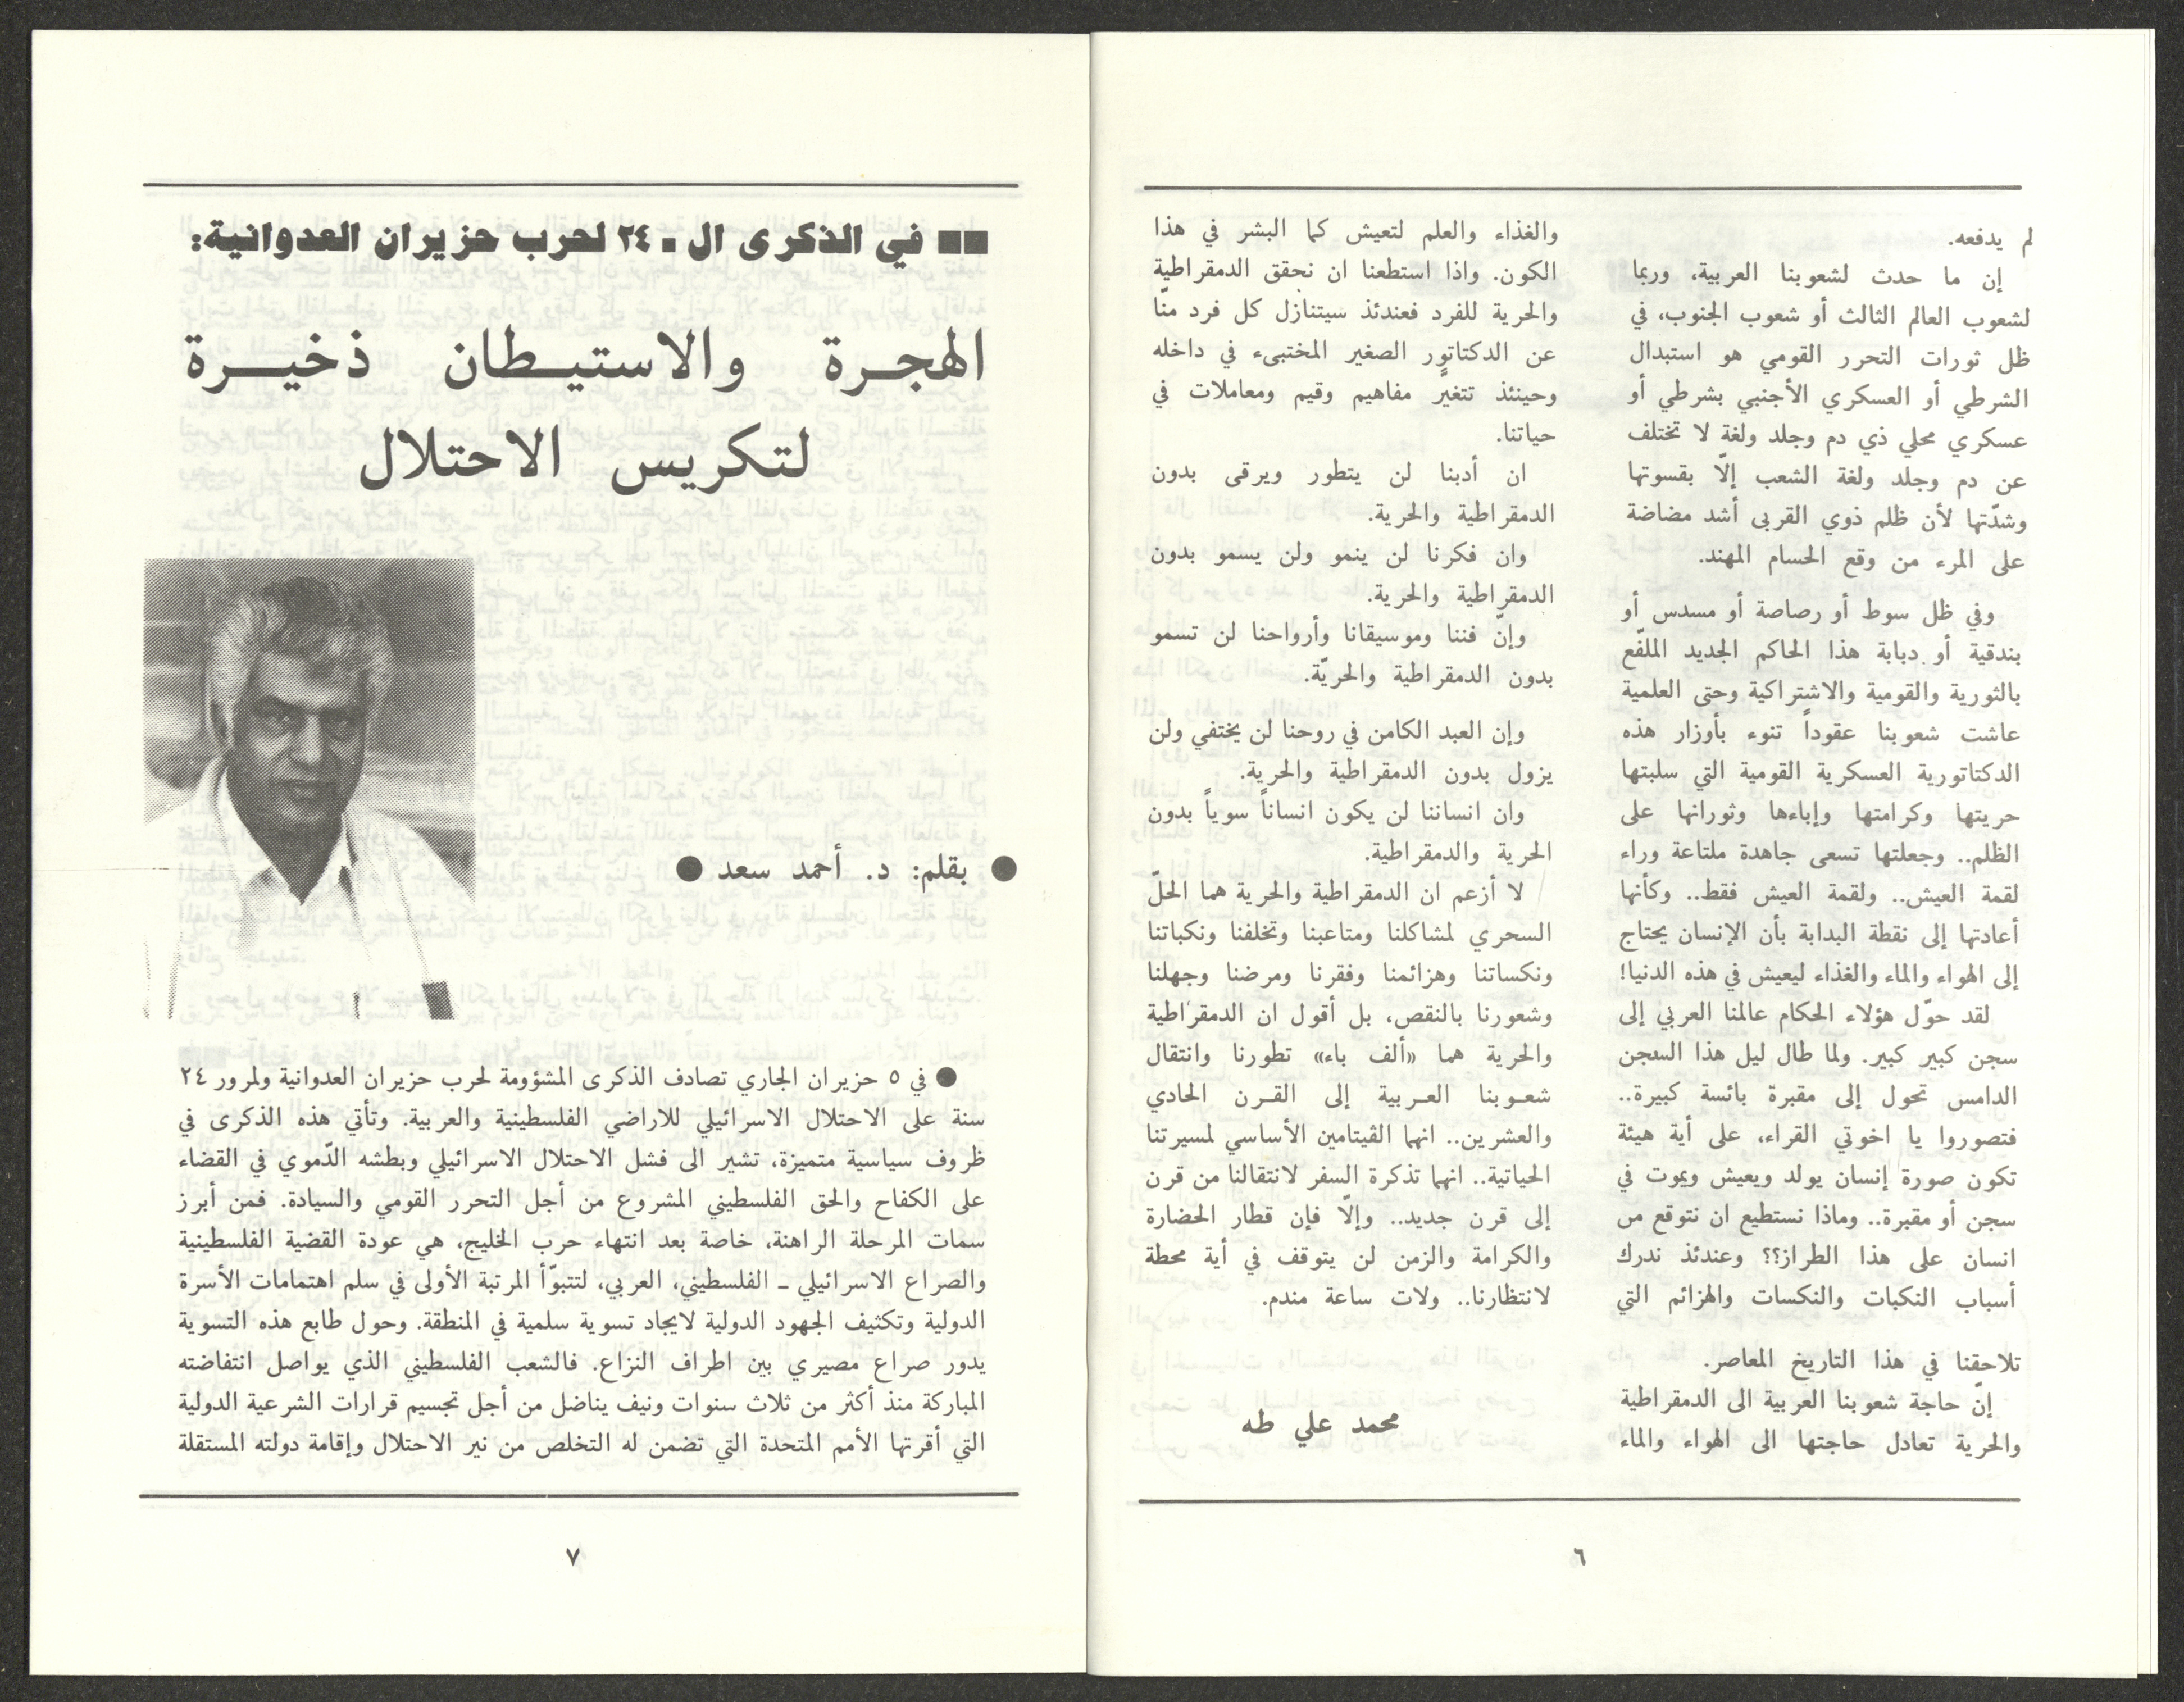 لم يدفعه.
إن ما حدث لشعوبنا العربية، وربما
لشعوب العالم الثالث أو شعوب الجنوب، في
ظل ثورات التحرر القومي هو استبدال
الشرطي أو العسكري الأجنبي بشرطي أو
عسكري محلي ذي دم وجلد ولغة لا تختلف
عن دم وجلد ولغة الشعب إلّا بقسوتها
وشدّتها لأن ظلم ذوي القربى أشد مضاضة
على المرء من وقع الحسام المهند.
وفي ظل سوط أو رصاصة أو مسدس أو
بندقية أو دبابة هذا الحاكم الجديد الملفّع
بالثورية والقومية والاشتراكية وحتى العلمية
عاشت شعوبنا عقوداً تنوء بأوزار هذه
الدكتاتورية العسكرية القومية التي سلبتها
حريتها وكرامتها وإباءها وثورانها على
الظلم.. وجعلتها تسعى جاهدة ملتاعة وراء
لقمة العيش.. ولقمة العيش فقط.. وكأنها
أعادتها إلى نقطة البداية بأن الإنسان يحتاج
إلى الهواء والماء والغذاء ليعيش في هذه الدنيا!
لقد حوّل هؤلاء الحكام عالمنا العربي إلى
سجن كبير كبير. ولما طال ليل هذا السجن
الدامس تحول إلى مقبرة بائسة كبيرة..
فتصوروا يا اخوتي القراء، على أية هيئة
تكون صورة إنسان يولد ويعيش ويموت في
سجن أو مقبرة.. وماذا نستطيع ان نتوقع من
انسان على هذا الطراز؟؟ وعندئذ ندرك
أسباب النكبات والنكسات والهزائم التي
تلاحقنا في هذا التاريخ المعاصر.
إنّ حاجة شعوبنا العربية الى الدمقراطية
والحرية تعادل حاجتها الى الهواء والماء
والغذاء والعلم لتعيش كما البشر في هذا
الكون. واذا استطعنا ان نحقق الدمقراطية
والحرية للفرد فعندئذ سيتنازل كل فرد منّا
عن الدكتاتور الصغير المختبىء في داخله
وحينئذ تتغيّر مفاهيم وقيم ومعاملات في
حياتنا.
ان أدبنا لن يتطور ويرقى بدون
الدمقراطية والحرية.
وان فكرنا لن ينمو ولن يسمو بدون
الدمقراطية والحرية.
وإنّ فننا وموسيقانا وأرواحنا لن تسمو
بدون الدمقراطية والحريّة.
وإن العبد الكامن في روحنا لن يختفي ولن
يزول بدون الدمقراطية والحرية.
وان انساننا لن يكون انساناً سوياً بدون
الحرية والدمقراطية.
لا أزعم ان الدمقراطية والحرية هما الحلّ
السحري لمشاكلنا ومتاعبنا وتخلفنا ونكباتنا
ونكساتنا وهزائمنا وفقرنا ومرضنا وجهلنا
وشعورنا بالنقص، بل أقول ان الدمقراطية
والحرية هما «ألف باء» تطورنا وانتقال
شعوبنا العربية إلى القرن الحادي
والعشرين.. انهما الڤيتامين الأساسي لمسيرتنا
الحياتية.. انهما تذكرة السفر لانتقالنا من قرن
إلى قرن جديد.. وإلّا فإن قطار الحضارة
والكرامة والزمن لن يتوقف في أية محطة
لانتظارنا.. ولات ساعة مندم.
محمد علي طه
٦
في الذكرى ال - ٢٤ لحرب حزيران العدوانية:
الهجرة والاستيطان ذخيرة
لتكريس الاحتلال
● بقلم: د. أحمد سعد ●
● في ٥ حزيران الجاري تصادف الذكرى المشؤومة لحرب حزيران العدوانية ولمرور ٢٤
سنة على الاحتلال الاسرائيلي للاراضي الفلسطينية والعربية. وتأتي هذه الذكرى في
ظروف سياسية متميزة، تشير الى فشل الاحتلال الاسرائيلي وبطشه الدّموي في القضاء
على الكفاح والحق الفلسطيني المشروع من أجل التحرر القومي والسيادة. فمن أبرز
سمات المرحلة الراهنة، خاصة بعد انتهاء حرب الخليج، هي عودة القضية الفلسطينية
والصراع الاسرائيلي ـ الفلسطيني، العربي، لتتبوّأ المرتبة الأولى في سلم اهتمامات الأسرة
الدولية وتكثيف الجهود الدولية لايجاد تسوية سلمية في المنطقة. وحول طابع هذه التسوية
يدور صراع مصيري بين اطراف النزاع. فالشعب الفلسطيني الذي يواصل انتفاضته
المباركة منذ أكثر من ثلاث سنوات ونيف يناضل من أجل تجسيم قرارات الشرعية الدولية
التي أقرتها الأمم المتحدة التي تضمن له التخلص من نير الاحتلال وإقامة دولته المستقلة
٧